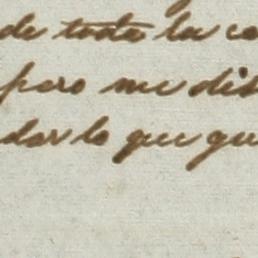 de toda la ca
pero me dis
dar lo que qu